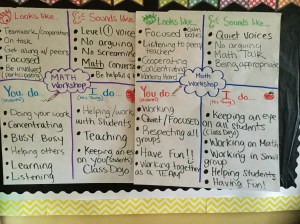 Looks like...
Teamwork/Cooperation
On task
Get along w/ peers
Focused
Be involved
(participating)
Sounds like...
Level 1 voices
No arguing
No Screaming
Math Conversations
Be helpful
MATH
Workshop
You do
Doing your work
Concentrating
BUSY Busy
Helping others
Learning
Listening
I do...
Helping/working
with Students
Teaching
Keeping an eye
on you
Class Dojo
Looks like...
Focused
Listening to peers/
teacher
Cooperating
Concentrating
Working Hard
Sounds like...
Quiet Voices
No arguing
Math Talk
Being appropriate
Math
Workshop
You do...
Working
Quiet/Focused
Respecting all
groups
Have Fun!!
Working together
as a TEAM!
I do...
Keeping an eye
on all students
(Class Dojo)
Working on Math
Working in small
group
Helping Students
Having Fun!